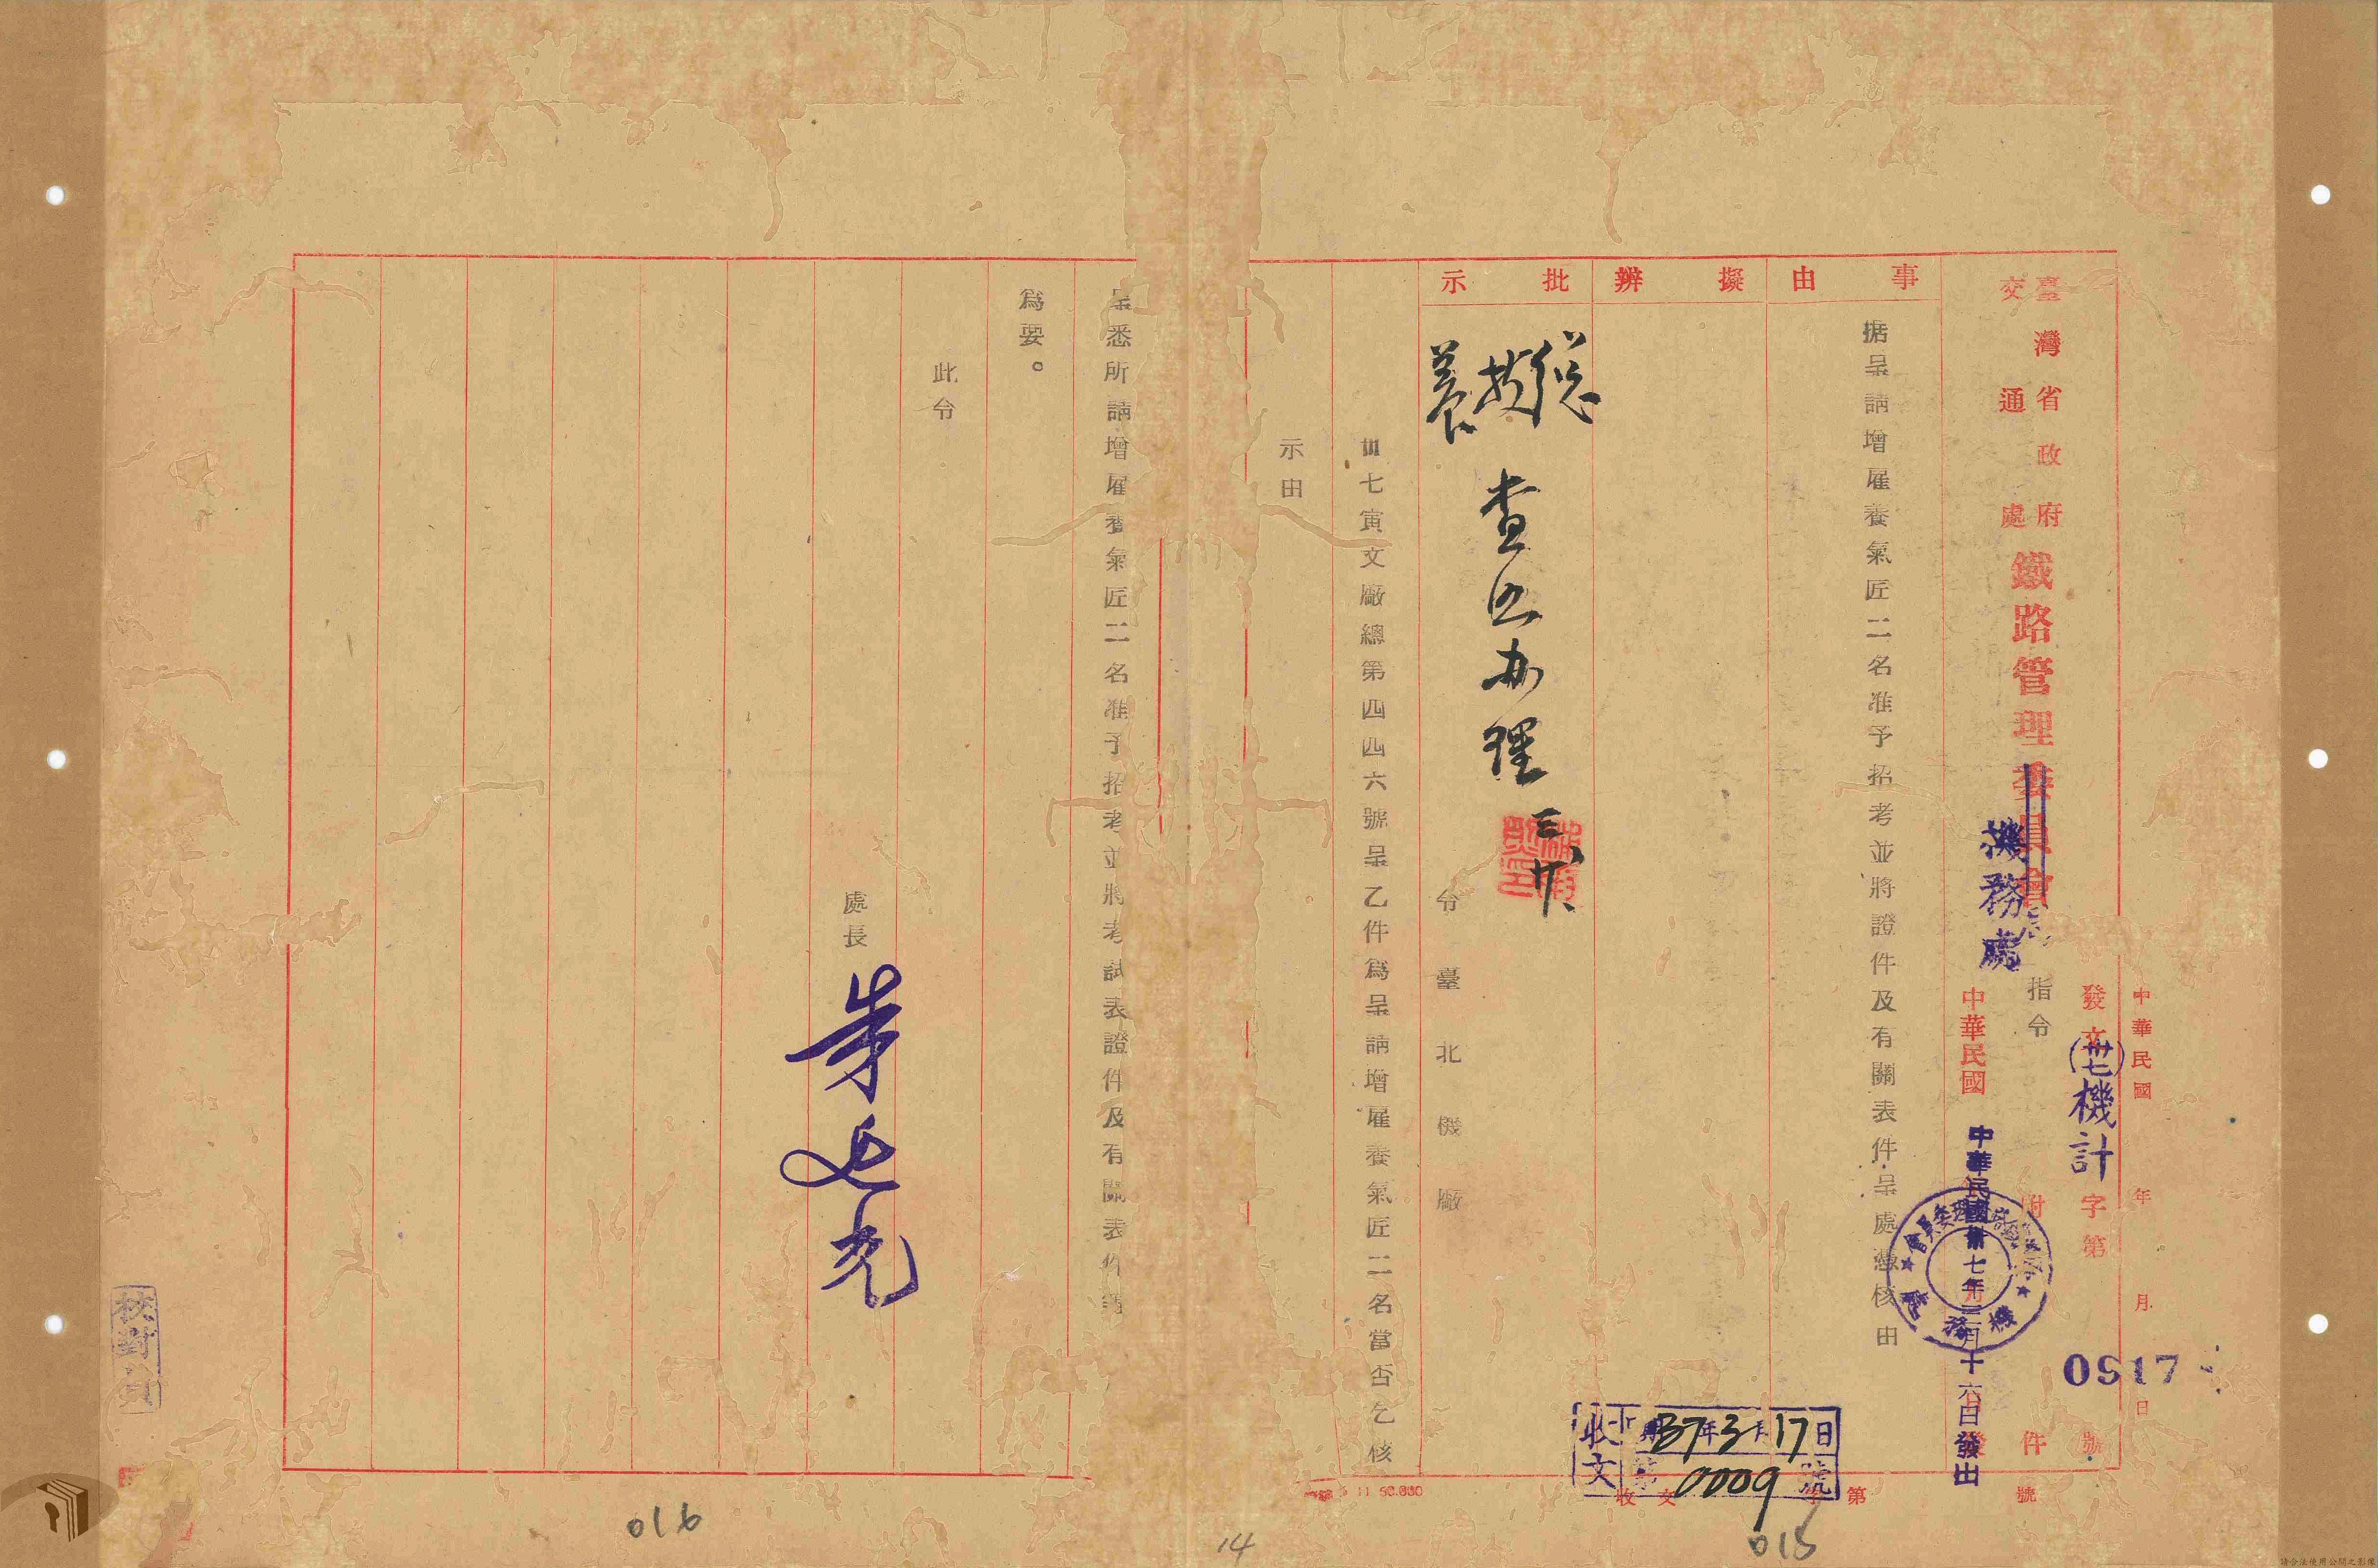 中華民國 年 月 日
發文(卅七)機計字第0917號
臺灣省政府交通處
鐵路管理委員會
機務處
指令
附 件
中華民國
中華民國卅七年三月十六日發出
事由
擬辦
批示
据呈請增雇養氣匠二名准予招考並將證件及有關表件呈處憑核由
查照办理
三、廿、
令臺北機廠
收文
37年3月17日
第0009號
收文 字第 號
卅七寅文廠總第四四六號呈乙件為呈請增雇養氣匠二名當否乞核
示由
呈悉所請增雇養氣匠二名准予招考並將考試表證件及有關表件
為要。
此令
處長
核對員
016
14
015